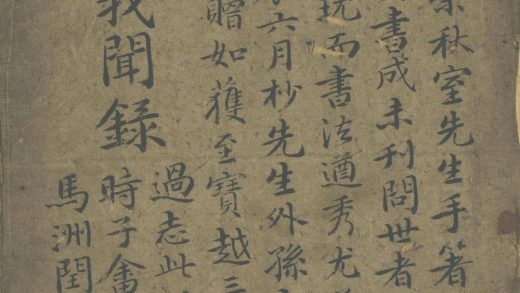 秋室先生手著
書成未刊問世者
而書法遒秀尤
六月杪先生外孫
贈如獲至寶越三
我聞錄
過志此
時子畬
馬洲閏